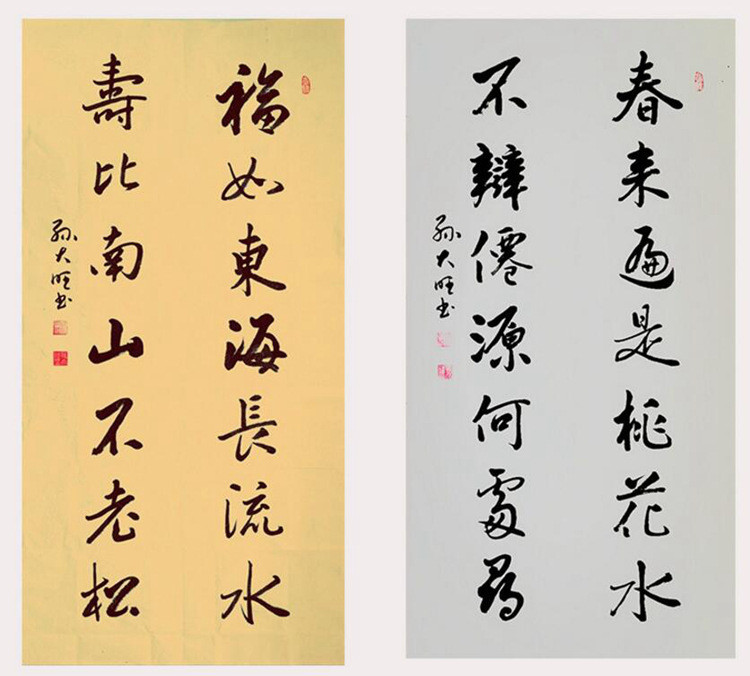 福如東海長流水
壽比南山不老松
孫大旺书
春来遍是桃花水
不辨僊源何處尋
孫大旺书